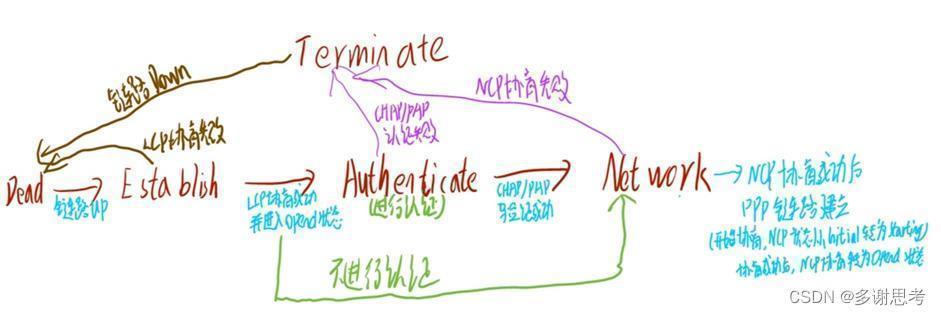 Terminate
链路Down
LCP协商失败
CHAP/PAP
认证失败
NCP协商失败
Dead
链路UP
Establish
LCP协商成功
并进入Opend状态
Authenticate
(进行认证)
CHAP/PAP
验证成功
Network
NCP协商成功后
PPP链路建立
(开始协商,NCP状态从Initial转为starting)
协商成功后,NCP协商转为Opend状态
不进行认证
CSDN @多谢思考